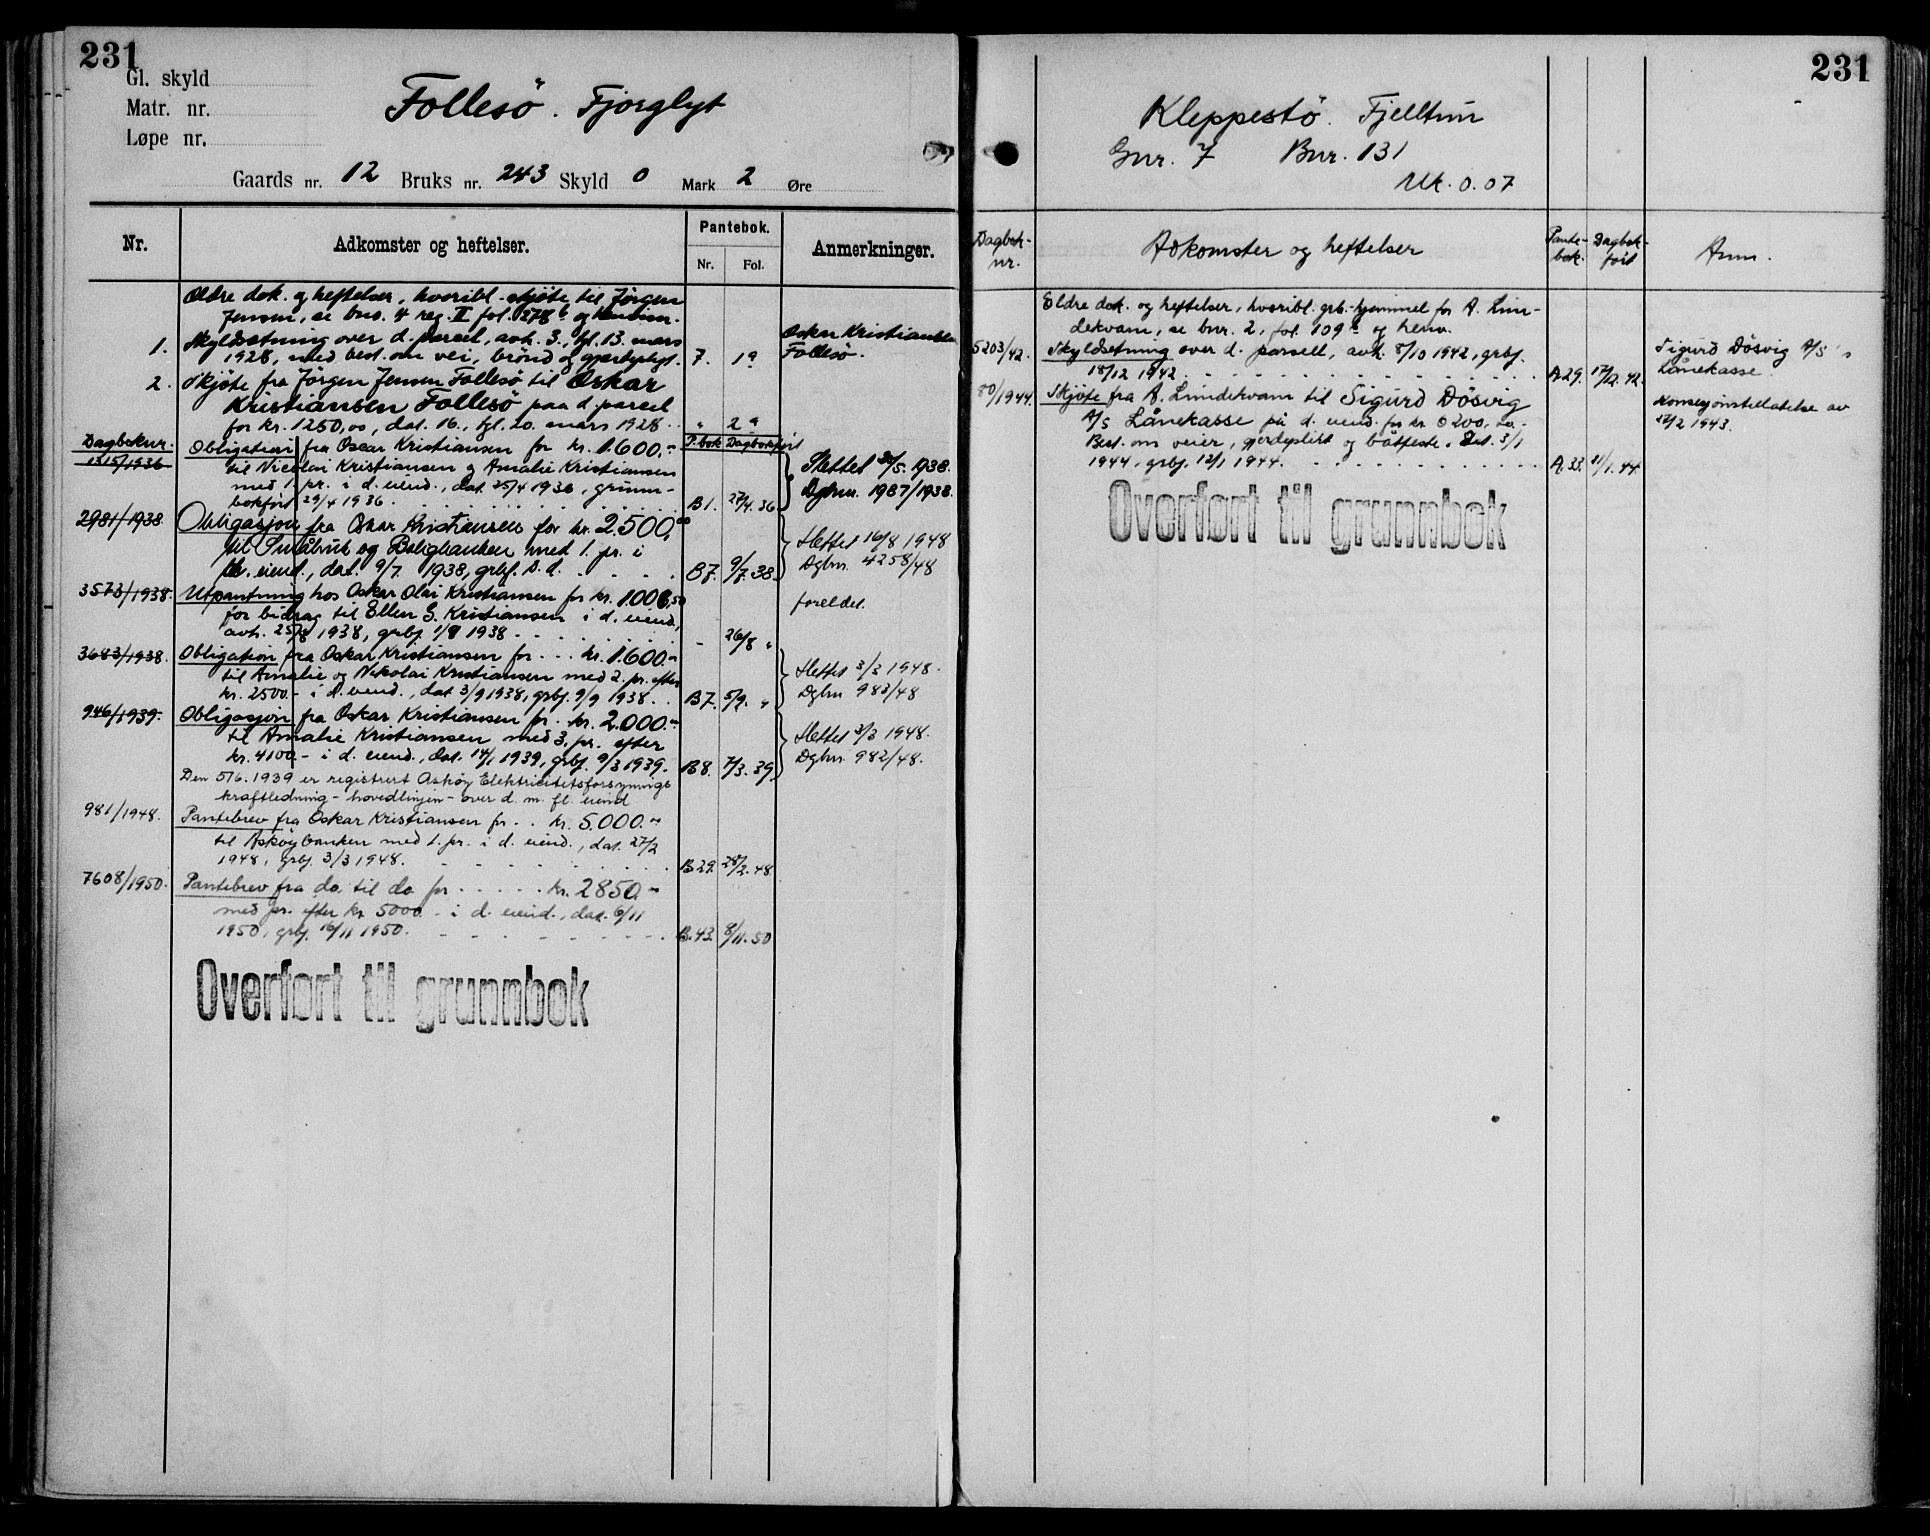 231
Gl. skyld
Matr. nr.
Løpe nr.
Follesö. Fjorglyt
Gaards nr. 12 Bruks nr. 243 Skyld 0 Mark 2 Øre
Nr.
Adkomster og heftelser.
Pantebok.
Nr. Fol.
Anmerkninger.
Ældre dok. og heftelser, hvoribl. skjöte til Jörgen
Jensen, se bno. 4 reg. II fol. 278 b og henvisn.
1. Skyldsetning over d. parcel, avh. 3., tgl. 13. mars
1928, med best. om vei, brönd og gjerdeplygt. 7. 1a
Oskar Kristiansen
Follesö.
2. Skjöte fra Jörgen Jensen Follesö til Oskar
Kristiansen Follesö paa d. parcel
for kr. 1250,00, dat. 16., tgl. 20. mars 1928 " 2a
Dagboknr. P.bok Dagbokfört
1315/1936 Obligation fra Oscar Kristiansen for kr. 1.600.-
til Nicolai Kristiansen og Amalie Kristiansen
med 1. pr. i d. eiend., dat. 25/4 1936, grunn-
bokført 29/4 1936. B1. 27/4. 36
Slettet 30/5. 1938.
Dgbnr. 1987/1938.
2981/1938. Obligasjon fra Oskar Kristiansen for kr. 2.500,00
til Småbruk og Boligbanken med 1. pr. i
d. eiend., dat. 9/7 1938, grbf. s. d. B7. 9/7. 38.
Slettet 16/8 1948
Dgbnr. 4258/48
3573/1938. Utpantning hos Oskar Olai Kristiansen for kr. 1.006,50
for bidrag til Ellen S. Kristiansen i d. eiend.,
avh. 25/8 1938, grbf. 1/9 1938 - 26/8 "
foreldet.
3683/1938. Obligation fra Oskar Kristiansen for kr. 1.600.-
til Amalie og Nikolai Kristiansen med 2. pr. efter
kr. 2500.- i d. eiend., dat. 3/9 1938, grbf. 9/9 1938. B7. 5/9. "
Slettet 3/3 1948.
Dgbnr. 983/48
946/1939. Obligasjon fra Oskar Kristiansen for kr. 2.000.-
til Amalie Kristiansen med 3. pr. efter
kr. 4100.- i d. eiend., dat. 14/1 1939, grbf. 9/3 1939. B8. 7/3. 39.
Slettet 3/3 1948.
Dgbnr. 982/48.
Den 5/6. 1939 er registrert Askøy Elektricitetsforsynings
kraftledning - hovedlinjen - over d. m. fl. eiend
981/1948. Pantebrev fra Oskar Kristiansen for kr. 5.000.-
til Askøybanken med 1. pr. i d. eiend., dat. 27/2
1948, grbf. 3/3 1948. B29. 28/2. 48
7608/1950. Pantebrev fra do. til do for kr. 2850.-
med pr. efter kr 5000.- i d. eiend., dat. 6/11
1950, grbf. 16/11 1950. B.43. 8/11. 50
Overført til grunnbok
231
Kleppestö. Fjelltun
Gnr. 7 Bnr. 131
Mk. 0.07
Dagbok-
nr.
Adkomster og heftelser
Pante-
bok.
Dagbok-
ført
Anm.
Eldre dok. og heftelser, hvoribl. grb. hjemmel for A. Lin-
dekvam, se bnr. 2, fol. 109 og henv.
5203/42. Skyldsetning over d. parsell, avh. 8/10 1942, grbf.
18/12 1942 A29. 17/12. 42.
Sigurd Dösvig A/S's
Lånekasse.
80/1944. Skjöte fra A. Lindekvam til Sigurd Dösvig
A/S Lånekasse på d. eiend. for kr 6200,
Best. om veier, gjerdeplikt og båtfeste. Dat. 3/1
1944, grbf. 12/1 1944. A.33. 11/1. 44.
Konsesjonstillatelse av
12/2 1943.
Overført til grunnbok